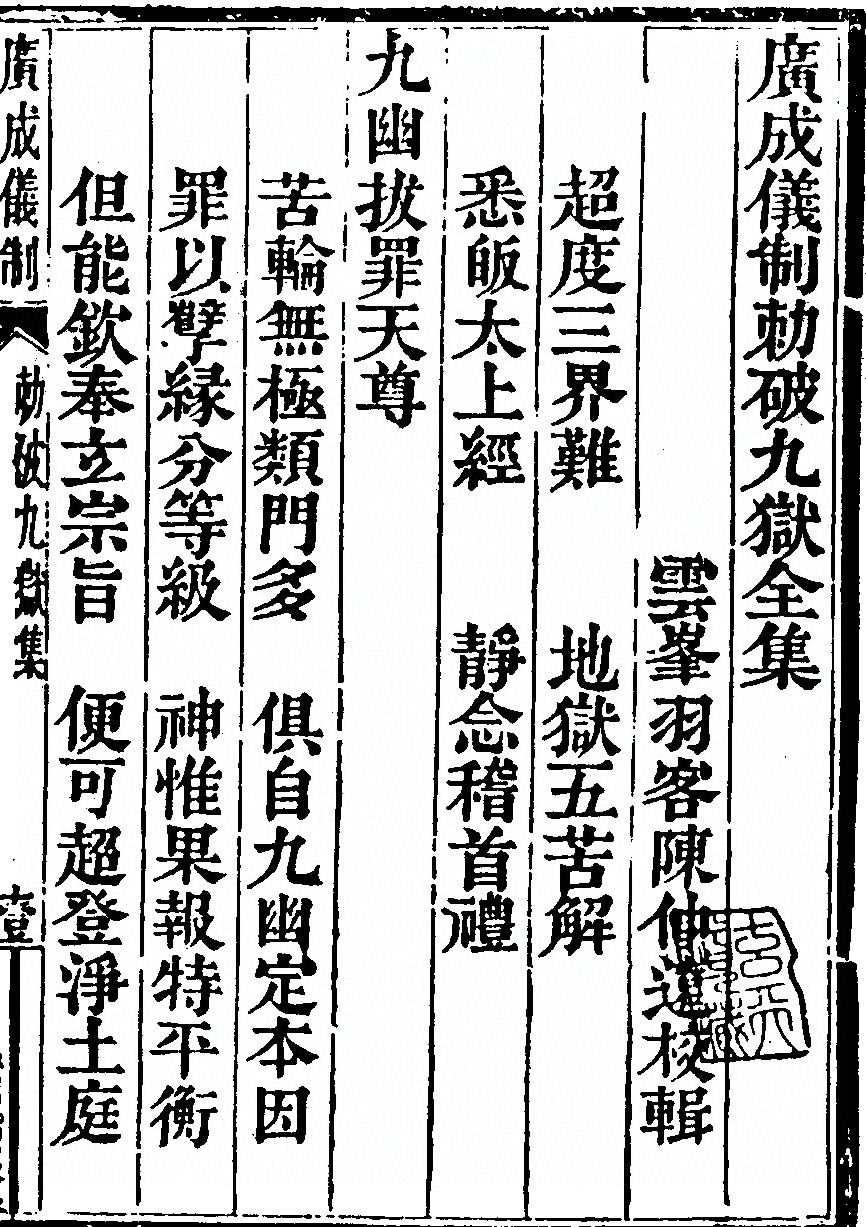 廣成儀制勅破九獄全集
雲峯羽客陳仲遠校輯
超度三界難　地獄五苦解
悉皈太上經　靜念稽首禮
九幽拔罪天尊
苦輪無極類門多　俱自九幽定本因
罪以孽緣分等級　神惟果報特平衡
但能欽奉立宗旨　便可超登淨土庭
廣成儀制　勅破九獄集　壹